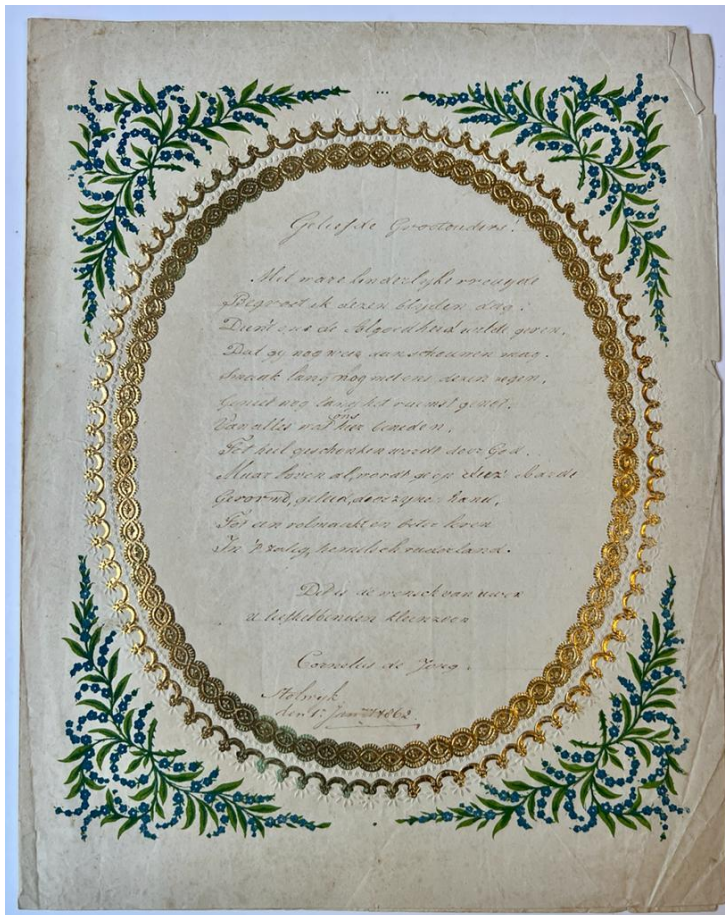 Geliefde Grootouders!
Met ware kinderlijke vreugde
Begroet ik dezen blijden dag:
Dien ons de Algoedheid wilde geven,
Dat gij nog weer aanschouwen mag.
Smaak lang nog met ons dezen zegen,
Geniet nog lang het genot,
Van alles wat ons hier beneden,
Tot heil geschonken wordt door God.
Maar boven al, wordt gij op deez' Aarde
Gevormd, geleid, door zijne hand,
Tot een volmaakt en beter leven
In 't zalig, hemelsch vaderland.
Dit is de wensch van uwen
u liefhebbenden kleinzoon
Cornelis de Jong.
Stolwijk
den 1. Jan 1863